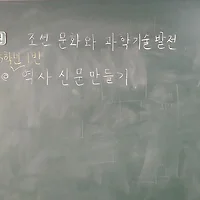 조선 문화와 과학기술 발전
학년 1반
@ 역사 신문만들기